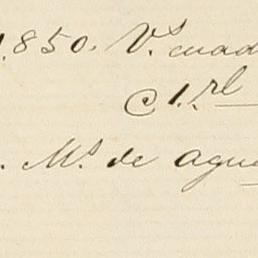 1.850. V.s cuad
C 1. rl
. Ms. de agua